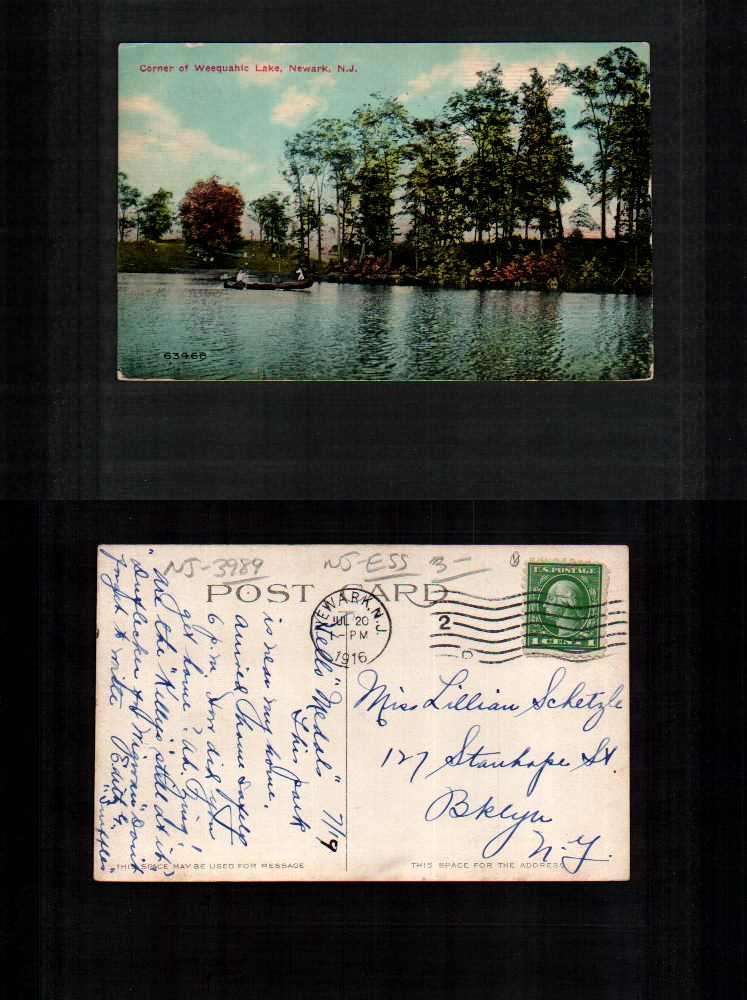 Corner of Weequahic Lake, Newark, N.J.
63466
NJ-3989 NJ-ESS 3-
POST CARD
U.S. POSTAGE
1 CENT 1
NEWARK, N.J.
JUL 20
1-PM
1916
2
7/19
Hello "Medals"
This park
is near my home.
arrived home safely
6 p.m. How did you
get home? Oh Flying!
Are the "Killeys" still at it?
"Dutlecker for Migran" Don't
forget to write Edith G.
"Snuffles"
Miss Lillian Schetzle
127 Stanhope St.
Bklyn
N-Y.
THIS SPACE MAY BE USED FOR MESSAGE
THIS SPACE FOR THE ADDRESS